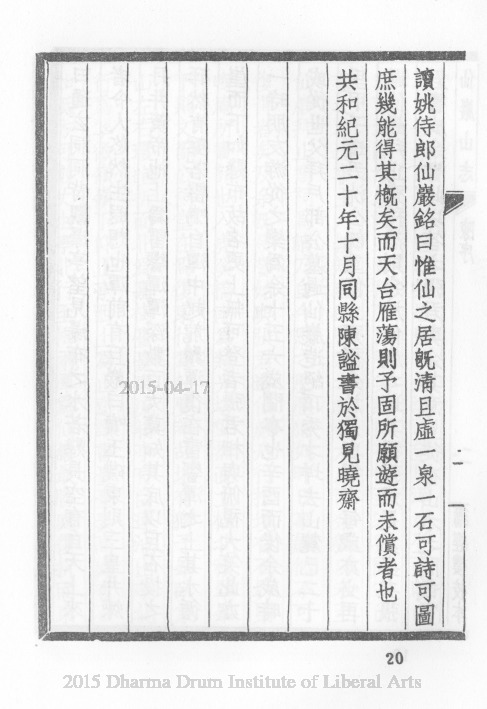 讀姚侍郎仙巖銘曰惟仙之居旣淸且虛一泉一石可詩可圖
庶幾能得其槪矣而天台雁蕩則予固所願遊而未償者也
共和紀元二十年十月同縣陳謐書於獨見曉齋
2015-04-17
20
2015 Dharma Drum Institute of Liberal Arts